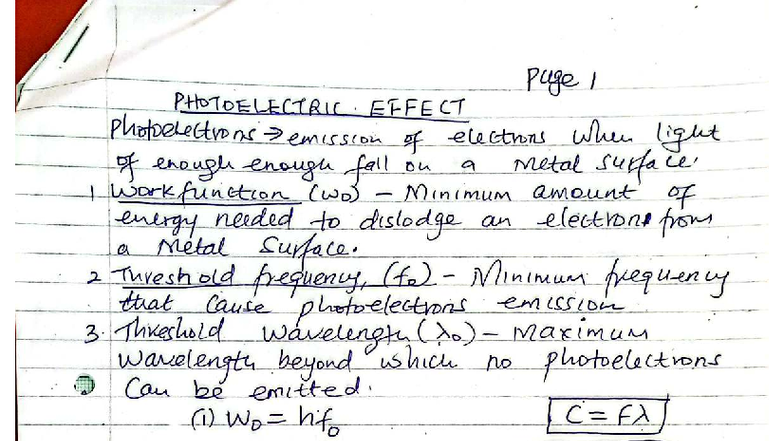 Page 1
PHOTOELECTRIC. EFFECT
Photoelectrons ⇒ emission of electrons when light
of enough enough fall on a metal surface.
1 Workfunction (W₀) – Minimum amount of
energy needed to dislodge an electrons from
a Metal Surface.
2 Threshold frequency, (f₀) – Minimum frequency
that Cause photoelectrons emission
3. Threshold wavelength (λ₀) – Maximum
Wavelength beyond which no photoelectrons
Can be emitted.
(i) W₀ = hf₀ C = Fλ